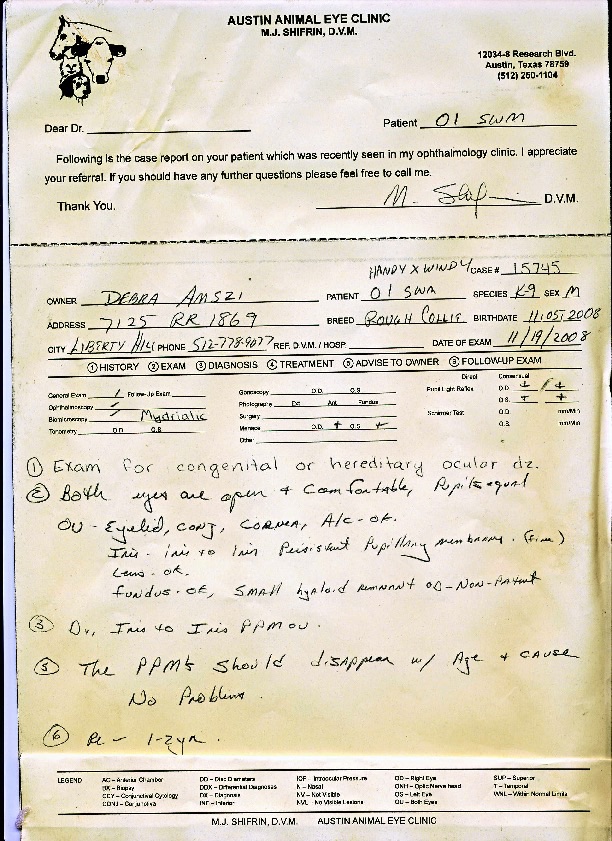 AUSTIN ANIMAL EYE CLINIC
M.J. SHIFRIN, D.V.M.
12034-8 Research Blvd.
Austin, Texas 78759
(512) 250-1104
Dear Dr. Patient 01 SWM
Following is the case report on your patient which was recently seen in my ophthalmology clinic. I appreciate
your referral. If you should have any further questions please feel free to call me.
Thank You. D.V.M.
HANDY X WINDY CASE # 15745
OWNER DEBRA AMSZI PATIENT 01 SWM SPECIES K9 SEX M
ADDRESS 7125 RR 1869 BREED ROUGH COLLIE BIRTHDATE 11.05.2008
CITY LIBERTY Hill PHONE 512-778-9077 REF. D.V.M. / HOSP. DATE OF EXAM 11/19/2008
① HISTORY ② EXAM ③ DIAGNOSIS ④ TREATMENT ⑤ ADVISE TO OWNER ⑥ FOLLOW-UP EXAM
General Exam / Follow-Up Exam
Ophthalmoscopy /
Biomicroscopy / Mydriatic
Tonometry O.D. O.S.
Gonioscopy O.D. O.S.
Photographs Ext. Ant. Fundus
Surgery
Menace O.D. + O.S. +
Other
Direct Consensual
Pupil Light Reflex O.D. + / +
O.S. + +
Schirmer Test O.D. mm/Min
O.S. mm/Min
① Exam for congenital or hereditary ocular dz.
② Both eyes are open + Comfortable, Pupils equal
OU - Eyelid, conj, cornea, A/c - ok.
Iris - Iris to Iris Persistent Pupillary membrane. (fine)
Lens - ok.
fundus - ok, small hyaloid remnant OD - Non-Patent
③ Dx, Iris to Iris PPM OU.
⑤ The PPM's should disappear w/ Age + cause
No Problem.
⑥ Re - 1-2yr.
LEGEND
AC – Anterior Chamber
BX – Biopsy
CCY – Conjunctival Cytology
CONJ – Conjunctiva
DD – Disc Diameters
DDX – Differential Diagnoses
DX – Diagnosis
INF – Inferior
IOP – Intraocular Pressure
N – Nasal
NV – Not Visible
NVL – No Visible Lesions
OD – Right Eye
ONH – Optic Nerve head
OS – Left Eye
OU – Both Eyes
SUP – Superior
T – Temporal
WNL – Within Normal Limits
M.J. SHIFRIN, D.V.M. AUSTIN ANIMAL EYE CLINIC